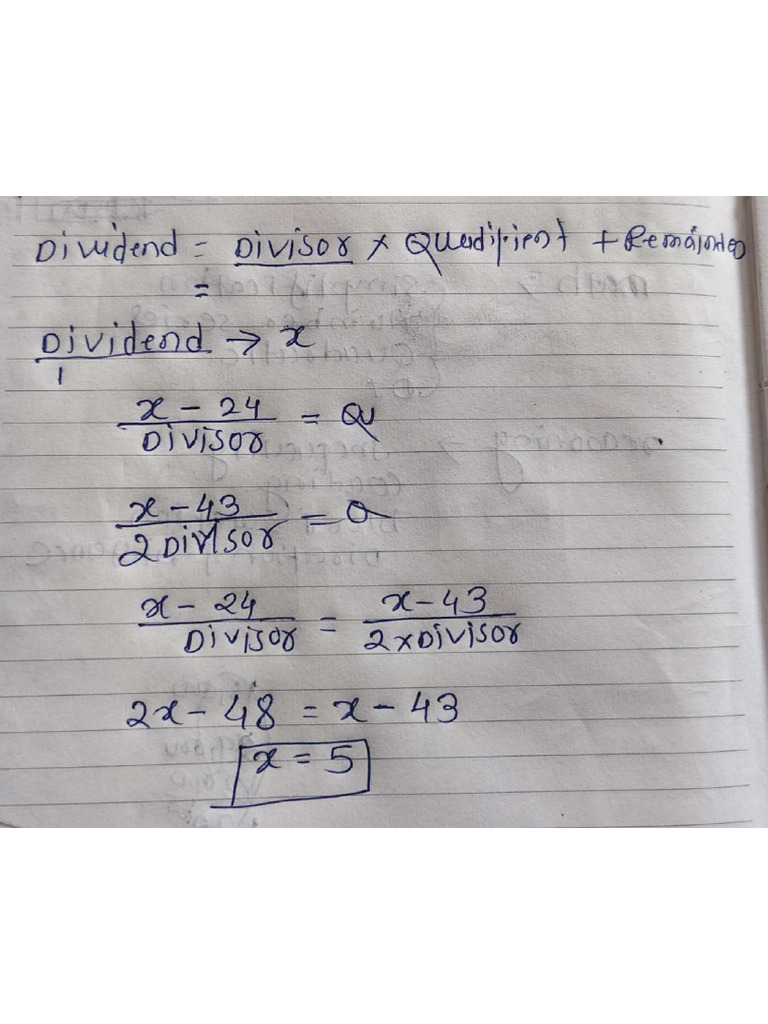 Dividend = Divisor × Quadipient + Remainder
=
Dividend → x
x - 24 / Divisor = Q
x - 43 / 2 Divisor = Q
x - 24 / Divisor = x - 43 / 2 × Divisor
2x - 48 = x - 43
x = 5